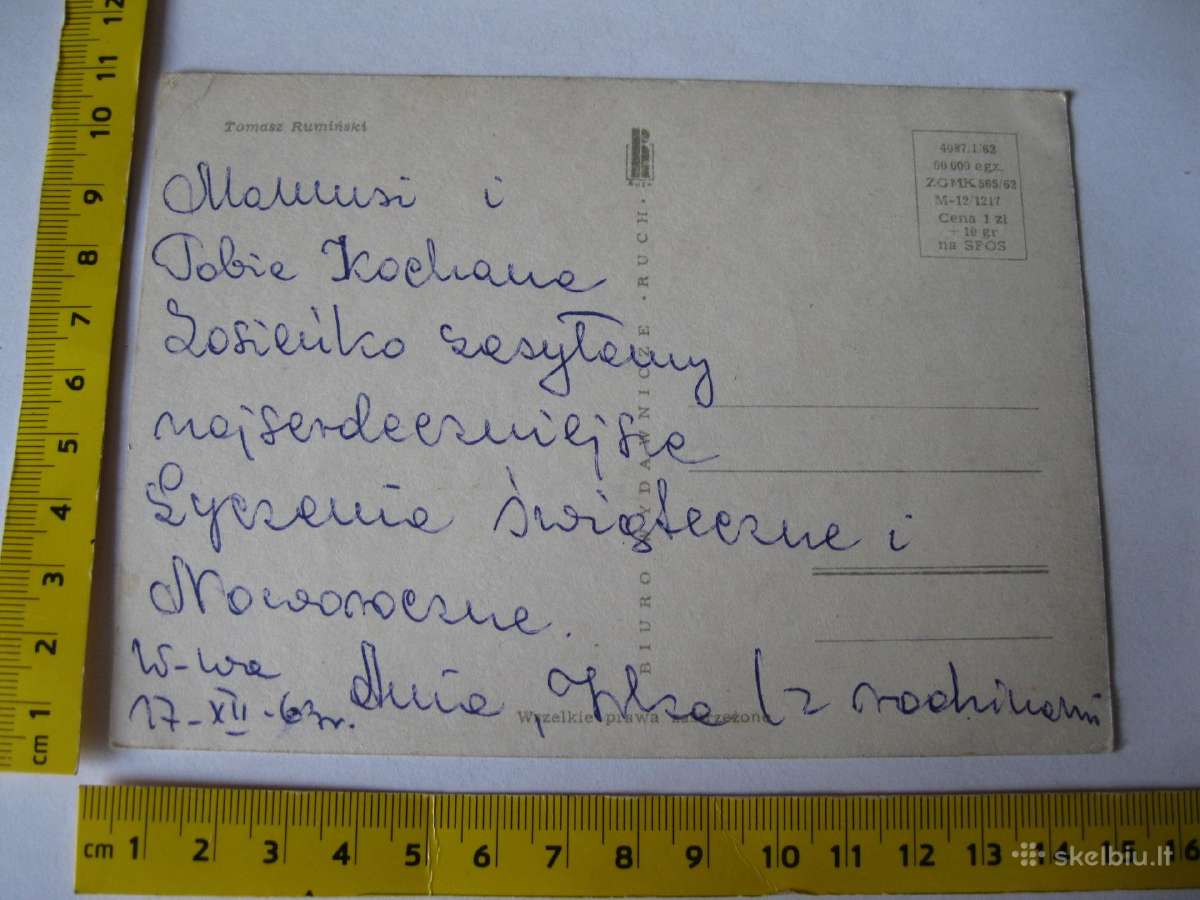 Tomasz Rumiński
4087.1/62
60 000 egz.
ZGMK 565/62
M-12/1217
Cena 1 zł
+ 10 gr
na SFOS
BIURO WYDAWNICZE · RUCH ·
Mamusi i
Tobie Kochana
Zosieńko zasyłamy
najserdeczniejsze
Życzenia świąteczne i
Noworoczne.
W-wa
17-XII-63r.
Ania
(z rodzinami
Wszelkie prawa zastrzeżone
12
11
10
9
8
7
6
5
4
3
2
1
cm
cm 1 2 3 4 5 6 7 8 9 10 11 12 13 14 15 16
skelbiu.lt